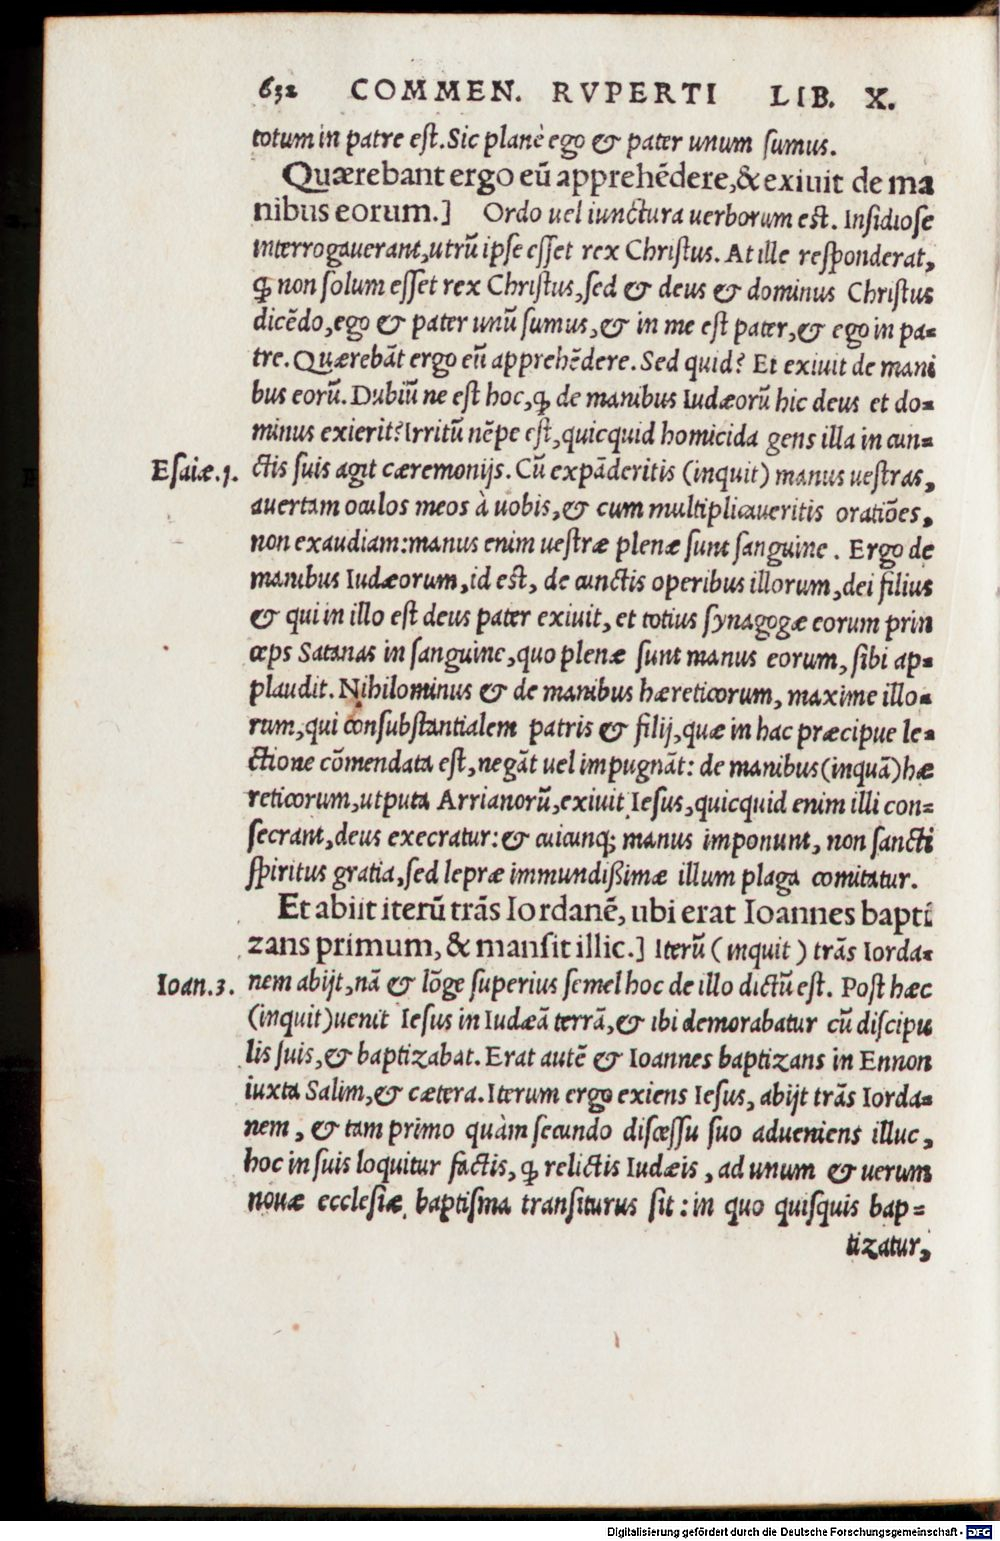 632 COMMEN. RVPERTI LIB. X.
totum in patre est. Sic planè ego & pater unum sumus.
Quærebant ergo eū apprehēdere, & exiuit de ma
nibus eorum.] Ordo uel iunctura uerborum est. Insidiose
interrogauerant, utrū ipse esset rex Christus. At ille responderat,
ꝙ non solum esset rex Christus, sed & deus & dominus Christus
dicēdo, ego & pater unū sumus, & in me est pater, & ego in pa=
tre. Quærebāt ergo eū apprehēdere. Sed quid? Et exiuit de mani
bus eorū. Dubiū ne est hoc, ꝙ de manibus Iudæorū hic deus et do=
minus exierit? Irritū nēpe est, quicquid homicida gens illa in cun=
Esaiæ.1. ctis suis agit cæremonijs. Cū expāderitis (inquit) manus uestras,
auertam oculos meos à uobis, & cum multiplicaueritis oratiōes,
non exaudiam: manus enim uestræ plenæ sunt sanguine. Ergo de
manibus Iudæorum, id est, de cunctis operibus illorum, dei filius
& qui in illo est deus pater exiuit, et totius synagogæ eorum prin
ceps Satanas in sanguine, quo plenæ sunt manus eorum, sibi ap=
plaudit. Nihilominus & de manibus hæreticorum, maxime illo=
rum, qui consubstantialem patris & filij, quæ in hac præcipue le=
ctione cōmendata est, negāt uel impugnāt: de manibus (inquā) hæ
reticorum, utputa Arrianorū, exiuit Iesus, quicquid enim illi con=
secrant, deus execratur: & cuicunq; manus imponunt, non sancti
spiritus gratia, sed lepræ immundißimæ illum plaga comitatur.
Et abiit iterū trās Iordanē, ubi erat Ioannes bapti
zans primum, & mansit illic.] Iterū (inquit) trās Iorda=
Ioan.3. nem abijt, nā & lōge superius semel hoc de illo dictū est. Post hæc
(inquit) uenit Iesus in Iudæā terrā, & ibi demorabatur cū discipu
lis suis, & baptizabat. Erat autē & Ioannes baptizans in Ennon
iuxta Salim, & cætera. Iterum ergo exiens Iesus, abijt trās Iorda=
nem, & tam primo quàm secundo discessu suo adueniens illuc,
hoc in suis loquitur factis, ꝙ relictis Iudæis, ad unum & uerum
nouæ ecclesiæ baptisma transiturus sit: in quo quisquis bap=
tizatur,
Digitalisierung gefördert durch die Deutsche Forschungsgemeinschaft - DFG